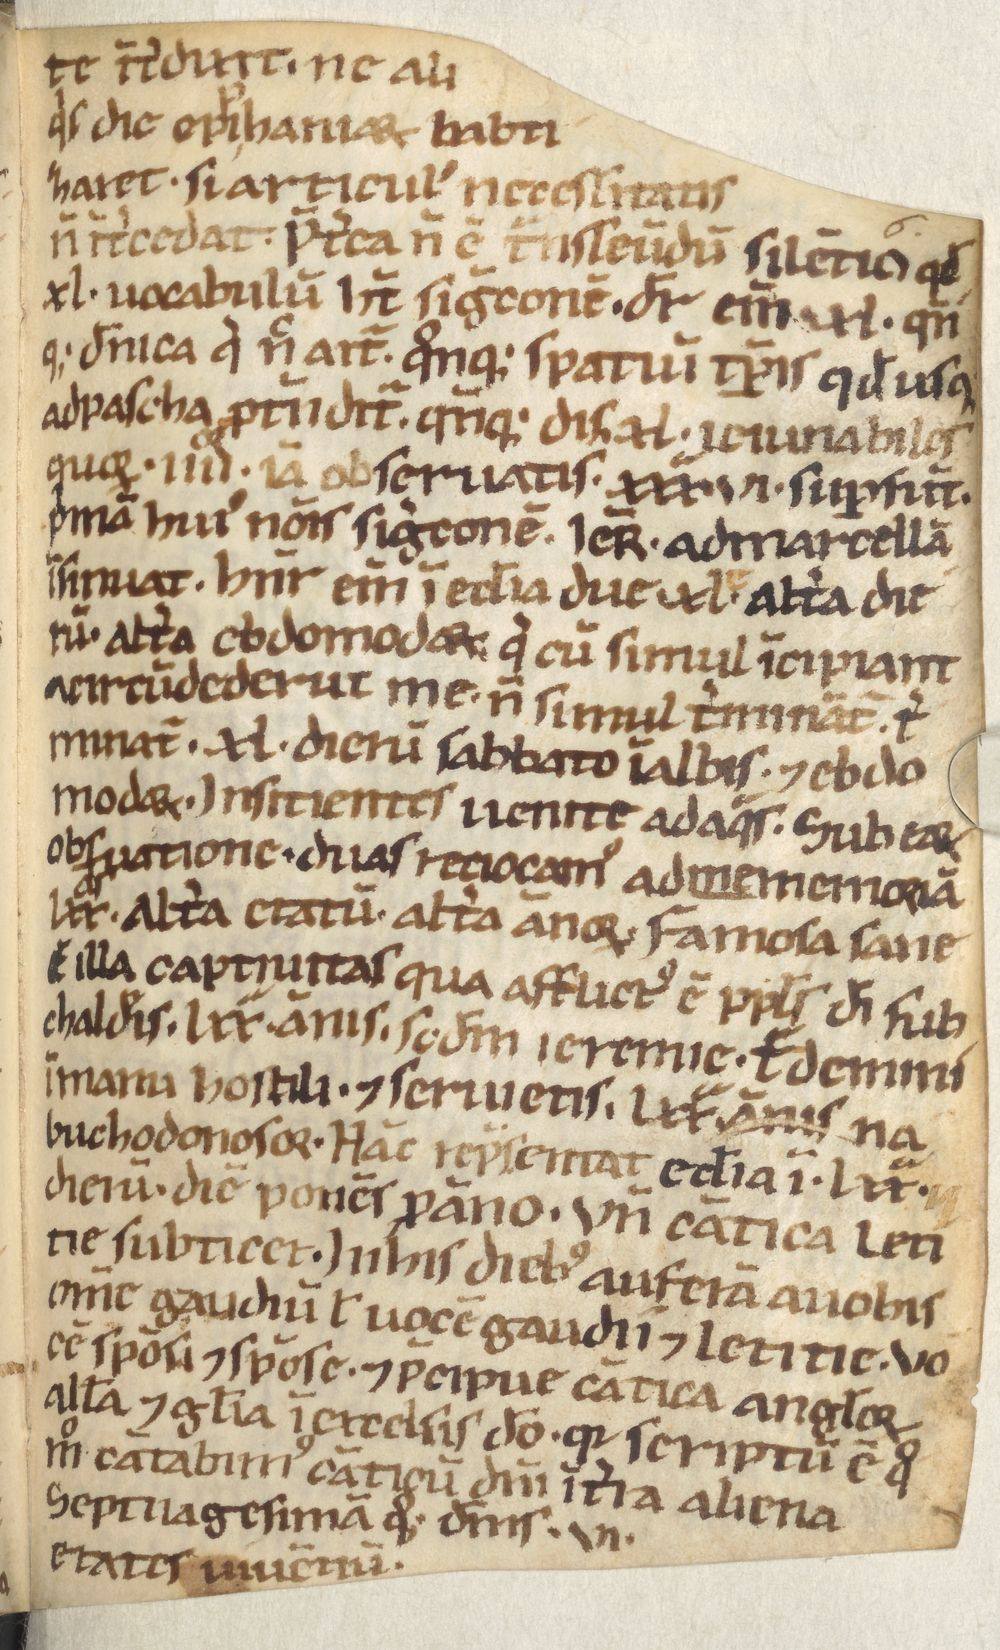 te ñ tͥdunt. ne ali
qͥs die epiphaniaꝝ babti
haret. si articulꝰ necessitatis
ñ ñtͥcedat. p̄tͥea ñ ē t̃nsseũdũ silētio qđ
6.
xl. uocabulũ hñt sigͥconē. dr̄ em̃ xl. qñ
q; dñica q̈ ñ art̃. qͦnq; spatiũ tp̃ris qđ usq
ad pascha ptñdit̃. qñq; dis. xl. ieiunabiles
queꝝ. iiii. iã obseruatis. xxx. vi. supsūt.
pͥmã huiꝰ nois sigͥconē. Ieꝝ. ad marcellã
ĩsinuat. hñr em̃ ĩ ecl̃ia due xl. altͥa die
rũ. altͥa ebdomodaꝝ. q̈ cũ simul ĩcipiant
a circũdederut me. ñ simul tͥminãt̃. tͥ
minat̃. xl. dierũ sabbato ĩ albis. ⁊ ebdo
modaꝝ. In sitientes uenite ad aqͣs. Sub eaꝝ
obsͤruatione. duas reuocamꝰ ad me memoriã
lxx. Altͥa etatũ. altͥa ãnoꝝ. Famosa sane
ē illa captiuitas qua afflictꝰ ē ppl̃s di sub
chaldͥis. lxx. ãnis. scd̃m ieremie. Tͣdemini
ĩ manu hostili. ⁊ seruietis. lxx. ãnis na
buchodonosoꝝ. Hãc rep̃sentat ecl̃ia ĩ. lxx.
dierũ. diē ponēs p ãno. Vñ cãtica leti
tie subticet. In his diebꝰ auferã a uobis
om̃e gaudiũ ł uocē gaudii ⁊ letitie. Vo
cē spõsi ⁊ spõse. ⁊ p̃cipue cãtica angl̃oꝝ
all̃a ⁊ gl̃ia ĩ excelsis do. qꝛ scriptũ ē qͦ
mͦ cãtabimꝰ cãticũ dñi ĩ tͥra aliena
Septuagesimã qͦ; dñis. VI.
etates